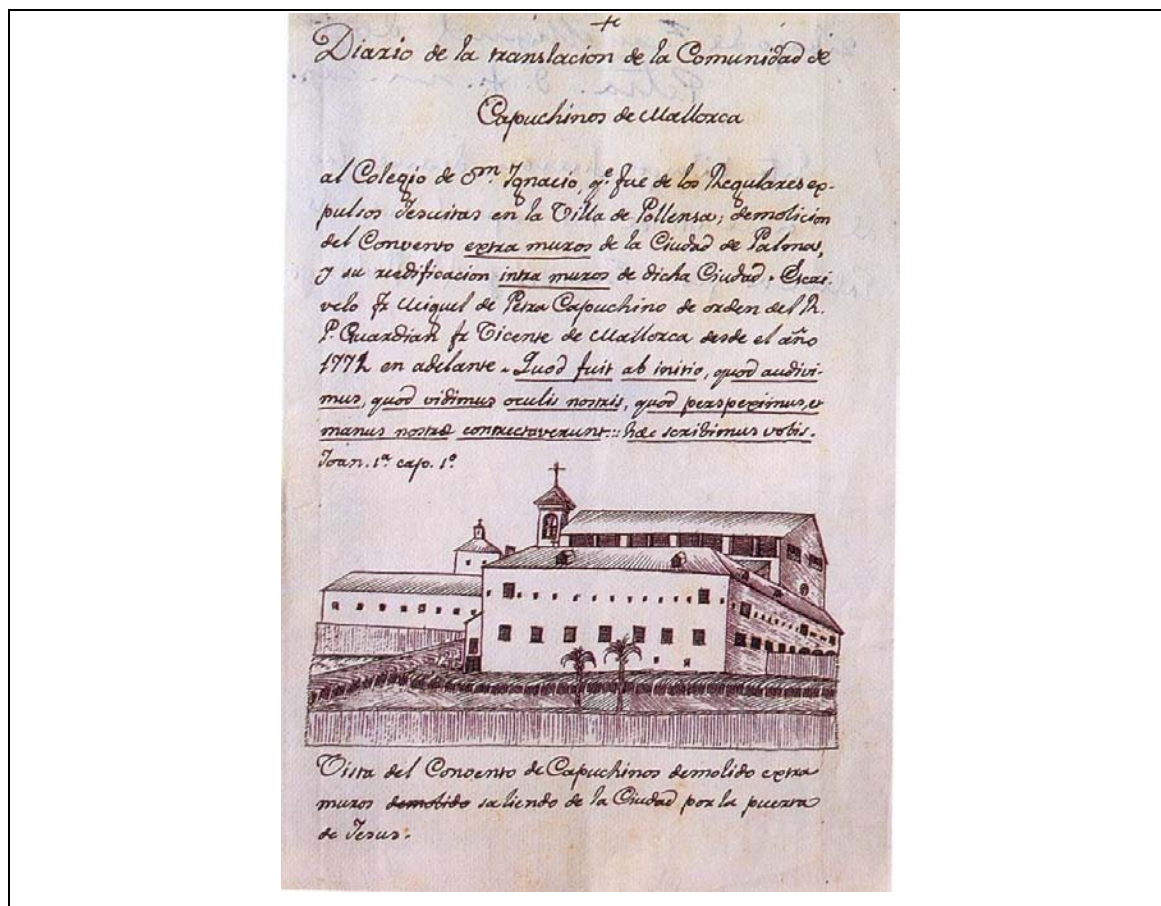 Diario de la translacion de la Comunidad de
Capuchinos de Mallorca
al Colegio de Sn. Ignacio, qe. fue de los Regulares ex-
pulsos Jesuitas en la Villa de Pollensa; demolicion
del Convento extra muros de la Ciudad de Palma,
y su reedificacion intra muros de dicha Ciudad. Escri-
velo fr Miguel de Petra Capuchino de orden del R.
P. Guardian fr Vicente de Mallorca desde el año
1772 en adelante. Quod fuit ab initio, quod audivi-
mus, quod vidimus oculis nostris, quod perspeximus, et
manus nostræ contrectaverunt... hæc scribimus vobis.
Joan. 1ª cap. 1º
Vista del Convento de Capuchinos demolido extra
muros demolido saliendo de la Ciudad por la puerta
de Jesus.